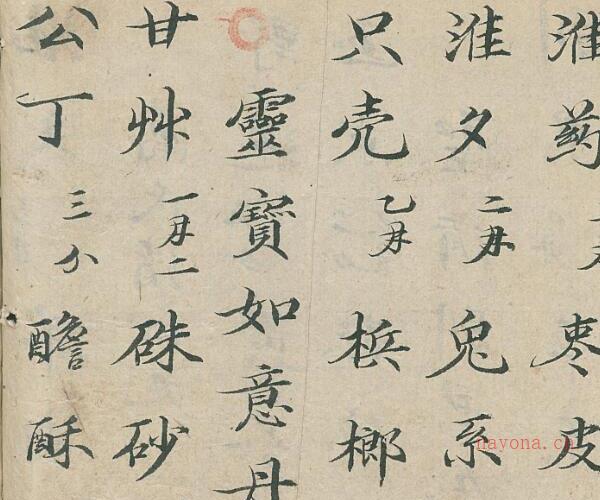 淮药 枣皮
淮夕 二丹 兔系
只壳 乙丹 梹榔
靈寶如意丹
甘艸 一丹二 硃砂
公丁 三分 醦酥
nayona.cn